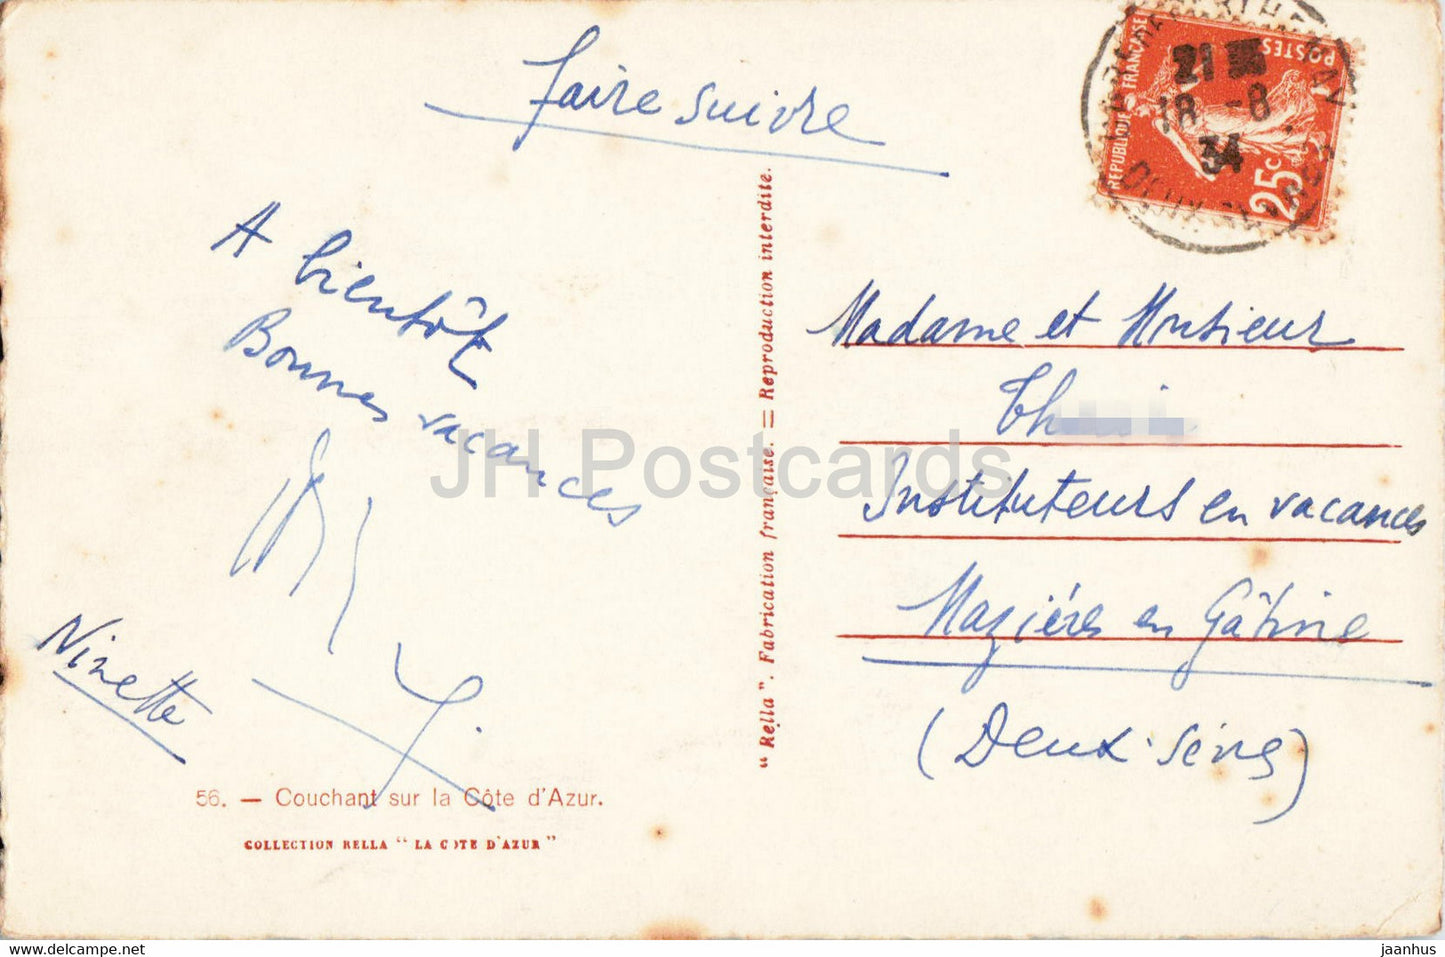 faire suivre
RÉPUBLIQUE FRANÇAISE
POSTES
25c
21
18 -8
34
DEUX-SEVRES
A bientôt
Bonnes vacances
Ninette
Madame et Monsieur
Instituteurs en vacances
Mazières en Gâtine
(Deux-Sèvres)
"Rella". Fabrication française. = Reproduction interdite.
56. — Couchant sur la Côte d'Azur.
COLLECTION RELLA "LA COTE D'AZUR"
JH Postcards
www.hippostcard.net
jaanhus